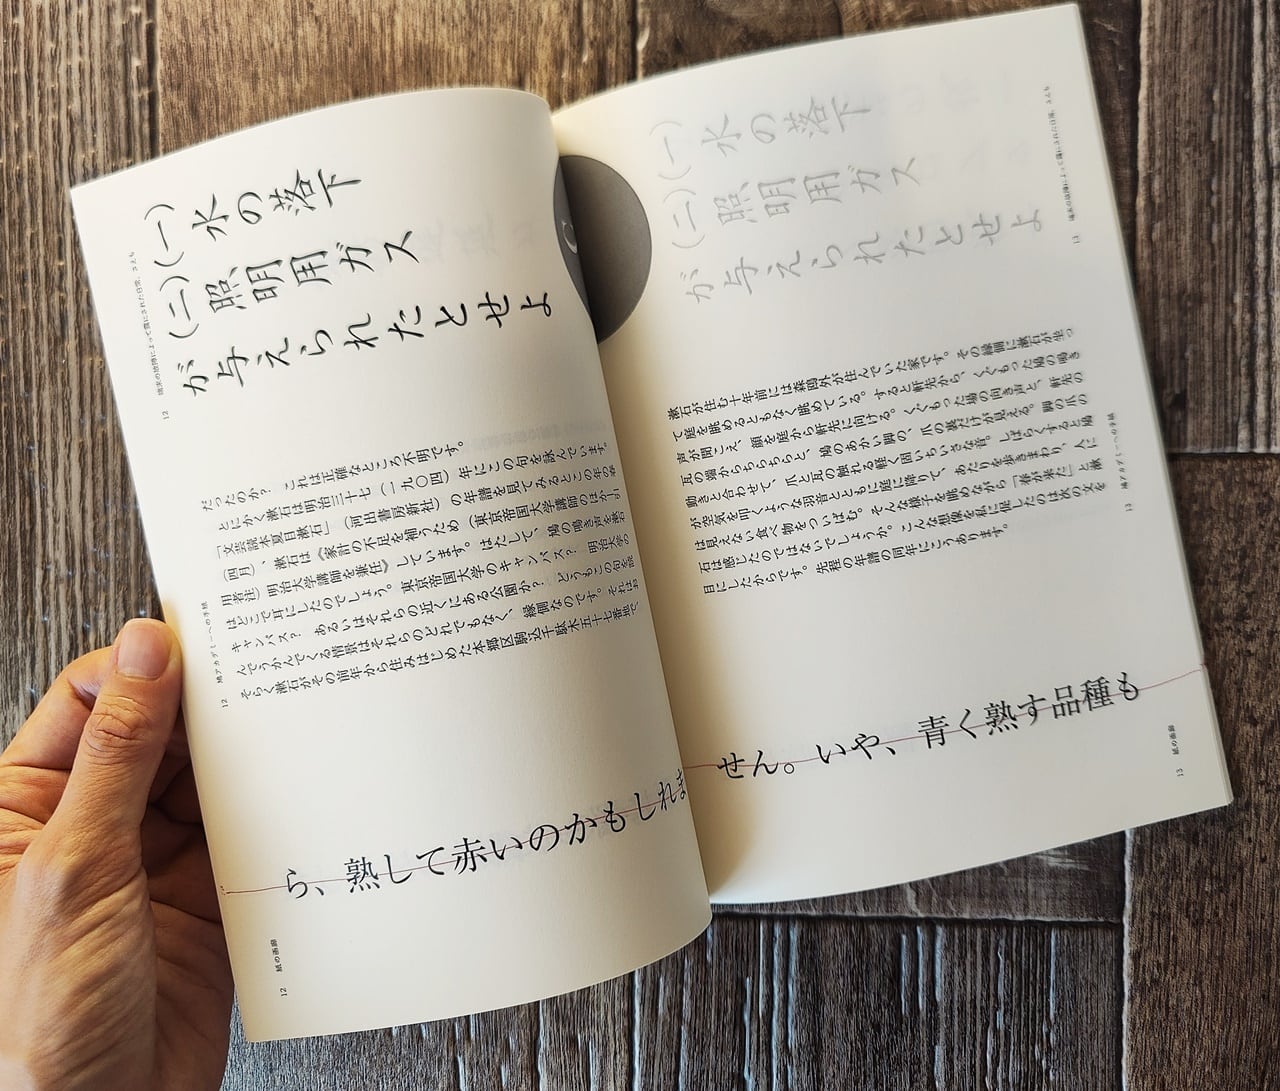 12 端末の故障によって露にされた日常、さえも
(一)水の落下
(二)照明用ガス
が与えられたとせよ
12 鳩アカデミーへの手紙
だったのか? これは正確なところ不明です。
とにかく漱石は明治三十七(一九〇四)年にこの句を詠んでいます。
『文芸読本夏目漱石』(河出書房新社)の年譜を見てみるとこの年の春
(四月)、漱石は《家計の不足を補うため(東京帝国大学講師のほかに
用者注)明治大学講師を兼任》しています。はたして、鳩の鳴き声を漱石
はどこで耳にしたのでしょう。東京帝国大学のキャンパス? 明治大学の
キャンパス? あるいはそれらの近くにある公園か? どうもこの句を読
んでうかんでくる情景はそれらのどれでもなく、縁側なのです。それはお
そらく漱石がその前年から住みはじめた本郷区駒込千駄木五十七番地で、
ら、熟して赤いのかもしれま
12 紙の画廊
(一)水の落下
(二)照明用ガス
が与えられたとせよ
13 端末の故障によって露にされた日常、さえも
漱石が住む十年前には森鴎外が住んでいた家です。その縁側に漱石が坐っ
て庭を眺めるともなく眺めている。すると軒先から、くぐもった鳩の鳴き
声が聞こえ、顔を庭から軒先に向ける。くぐもった鳩の啼き声と、軒先の
瓦の端からちらちらと、鳩のあかい脚の、爪の裏だけが見える。脚の爪の
動きと合わせて、爪と瓦の触れる軽く固いちいさな音。しばらくすると鳩
が空気を叩くような羽音とともに庭に降りて、あたりを歩きまわり、人に
は見えない食べ物をついばむ。そんな様子を眺めながら「春が来た」と漱
石は感じたのではないでしょうか。こんな想像を私に促したのは次の文を
目にしたからです。先程の年譜の同年にこうあります。
13 鳩アカデミーへの手紙
せん。いや、青く熟す品種も
13 紙の画廊